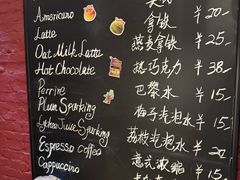 Americano 美式 ¥20-
Latte 拿铁 ¥25-
Oat Milk Latte 燕麦拿铁
Hot Chocolate 热巧克力 ¥38-
Perrine 巴黎水 ¥15
Plum Sparking 梅子气泡水 ¥15
Lychee Juice Sparking 荔枝气泡水 ¥
Espresso Coffee 意式浓缩 ¥15
Cappuccino